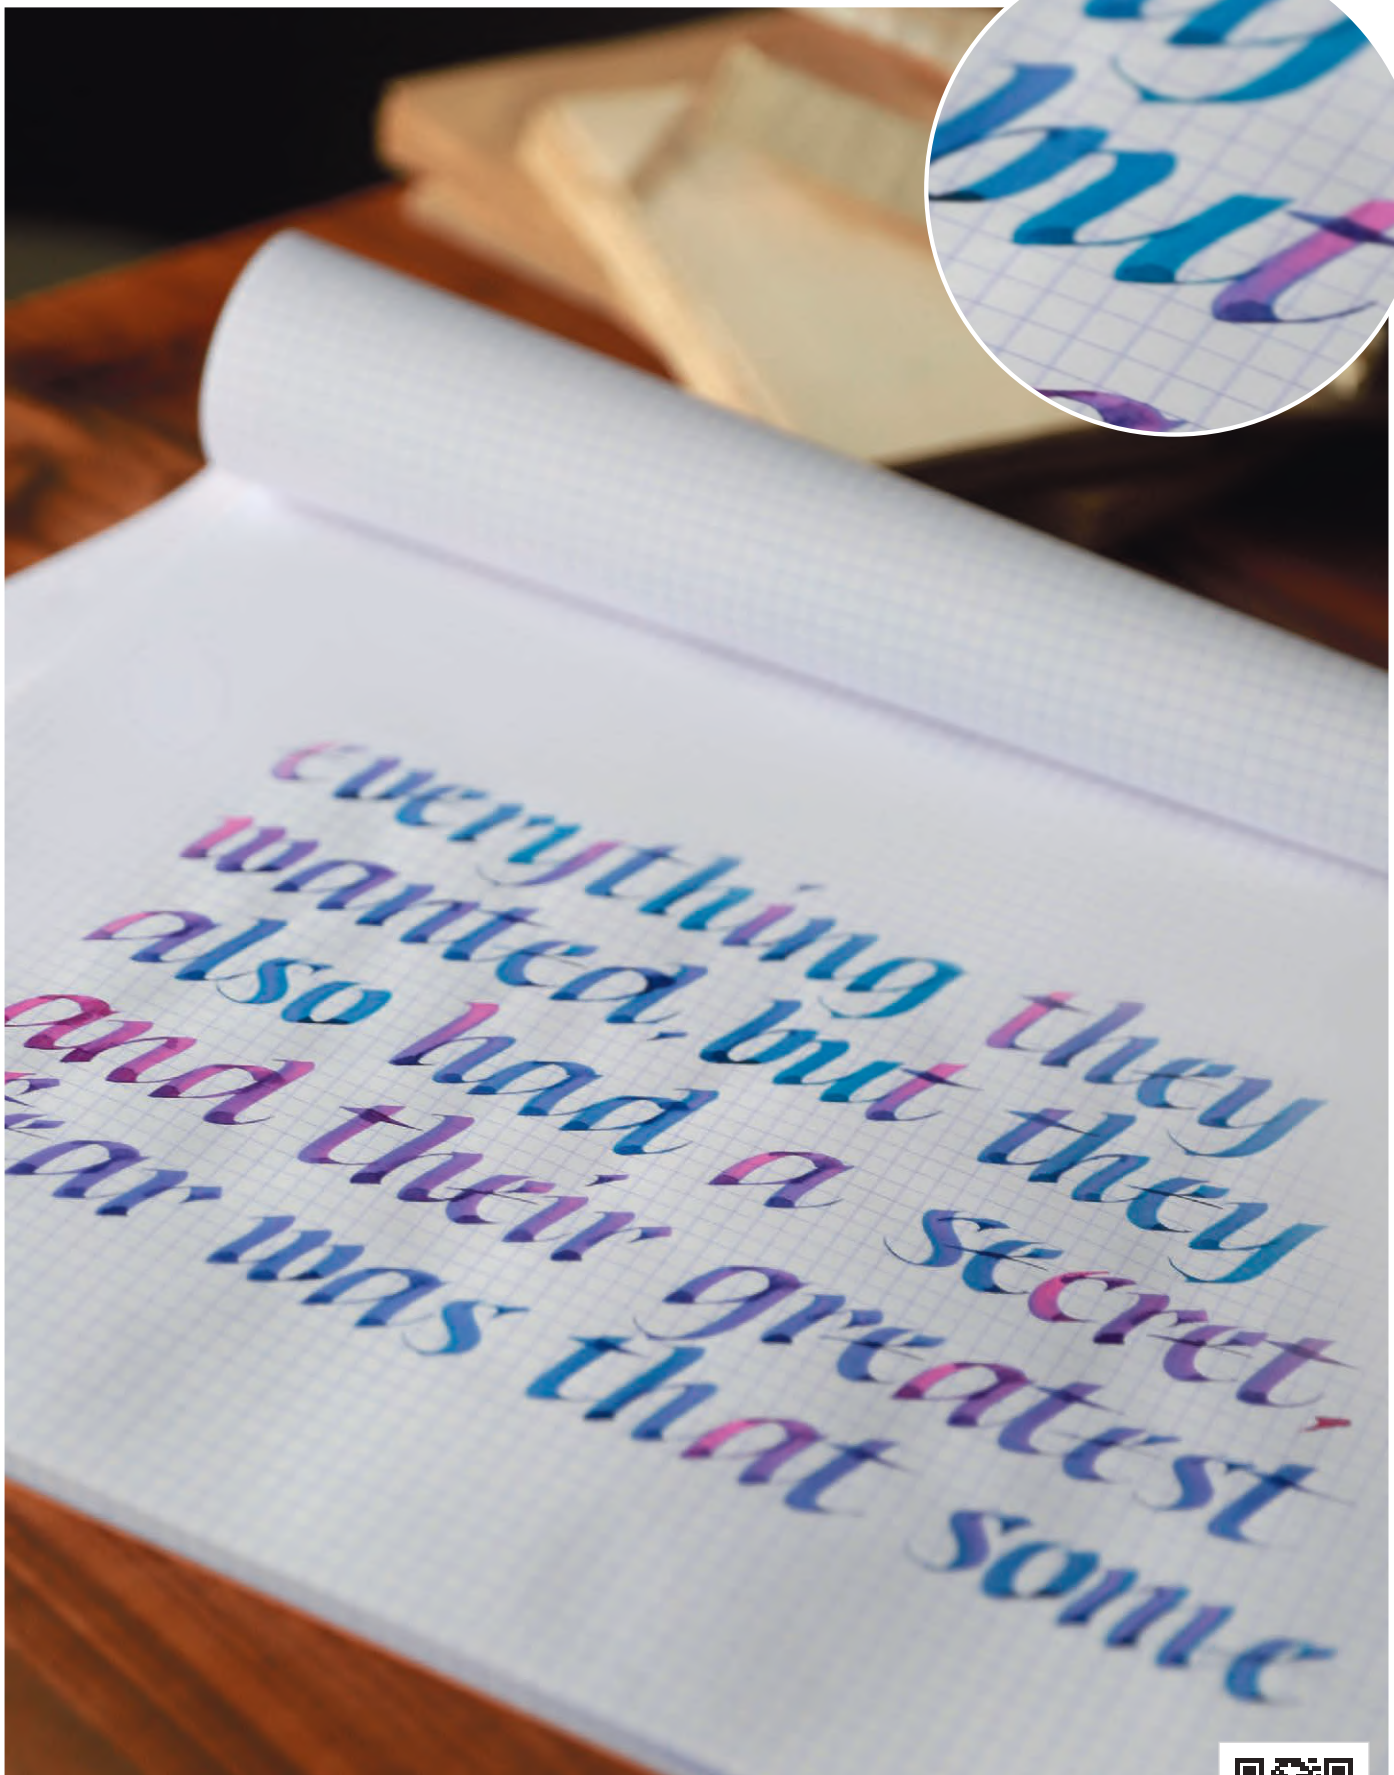 but
everything they
wanted, but they
also had a secret,
and their greatest
fear was that some